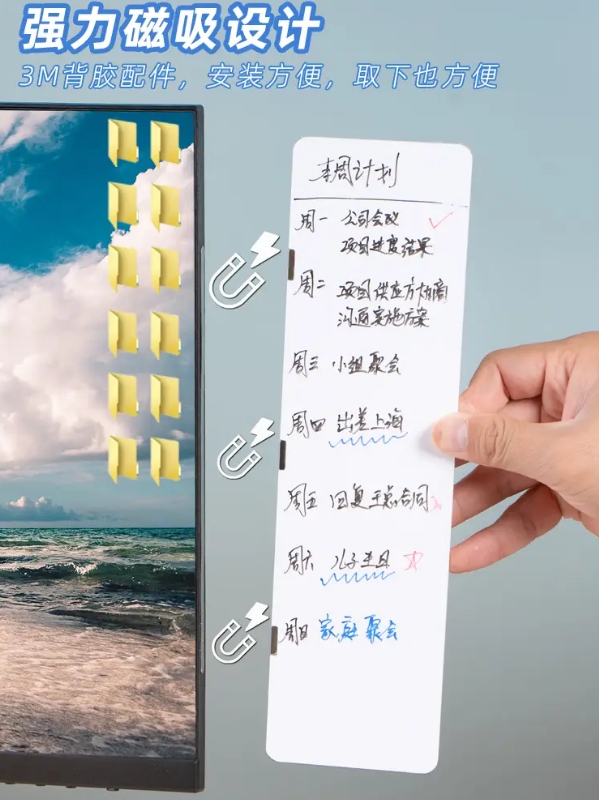 强力磁吸设计
3M背胶配件，安装方便，取下也方便
本周计划
周一 公司会议
项目进度结果
周二 项目供应方
沟通实施方案
周三 小组聚会
周四 出差上海
周五 回复王总合同
周六 儿子生日
周日 家庭聚会